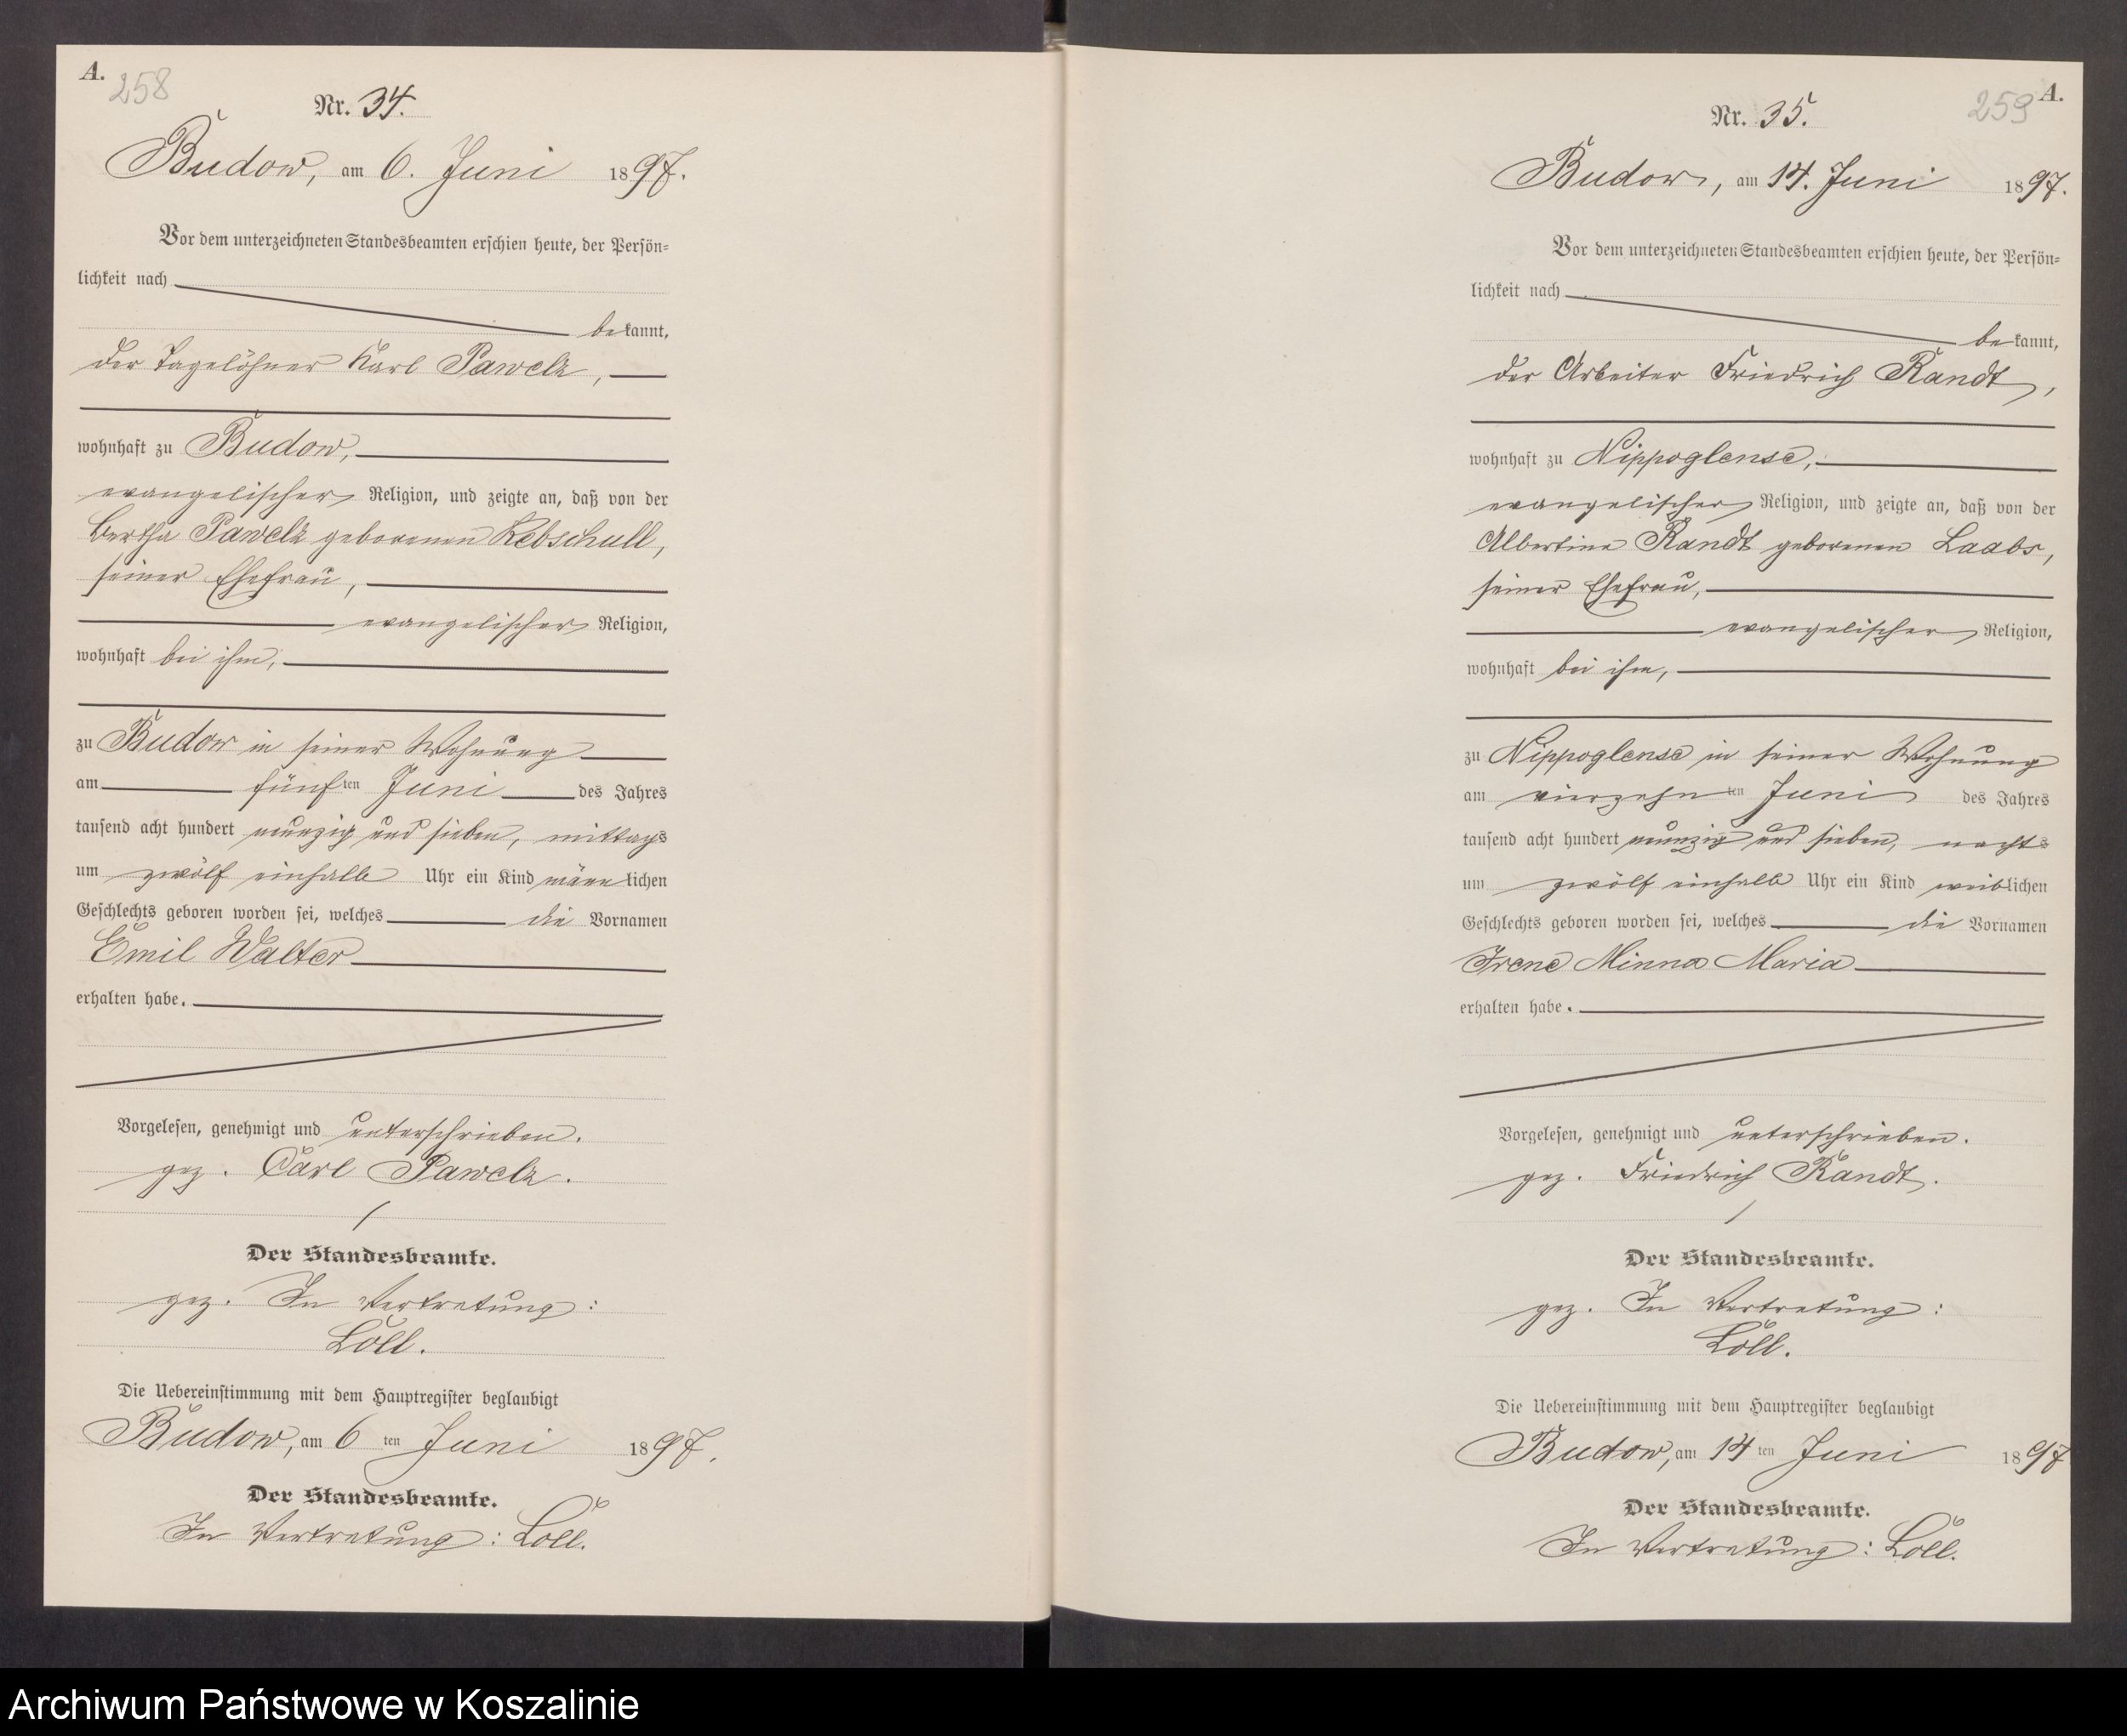 A.
258
Nr. 34.
Budow, am 6. Juni 1897.
Vor dem unterzeichneten Standesbeamten erschien heute, der Persön-
lichkeit nach
bekannt,
der Tagelöhner Karl Pawelz,
wohnhaft zu Budow,
evangelischer Religion, und zeigte an, daß von der
Bertha Pawelz geborenen Rebschull,
seiner Ehefrau,
evangelischer Religion,
wohnhaft bei ihm,
zu Budow in seiner Wohnung
am fünften Juni des Jahres
tausend acht hundert neunzig und sieben, mittags
um zwölf einhalb Uhr ein Kind männlichen
Geschlechts geboren worden sei, welches die Vornamen
Emil Walter
erhalten habe.
Vorgelesen, genehmigt und unterschrieben.
gez. Carl Pawelz.
Der Standesbeamte.
gez. In Vertretung:
Löll.
Die Uebereinstimmung mit dem Hauptregister beglaubigt
Budow, am 6 ten Juni 1897.
Der Standesbeamte.
In Vertretung: Löll.
A.
259
Nr. 35.
Budow, am 14. Juni 1897.
Vor dem unterzeichneten Standesbeamten erschien heute, der Persön-
lichkeit nach
bekannt,
der Arbeiter Friedrich Randt,
wohnhaft zu Nippoglense,
evangelischer Religion, und zeigte an, daß von der
Albertine Randt geborenen Laabs,
seiner Ehefrau,
evangelischer Religion,
wohnhaft bei ihm,
zu Nippoglense in seiner Wohnung
am vierzehnten Juni des Jahres
tausend acht hundert neunzig und sieben, nachts
um zwölf einhalb Uhr ein Kind weiblichen
Geschlechts geboren worden sei, welches die Vornamen
Irene Minna Maria
erhalten habe.
Vorgelesen, genehmigt und unterschrieben.
gez. Friedrich Randt.
Der Standesbeamte.
gez. In Vertretung:
Löll.
Die Uebereinstimmung mit dem Hauptregister beglaubigt
Budow, am 14 ten Juni 1897
Der Standesbeamte.
In Vertretung: Löll.
Archiwum Państwowe w Koszalinie